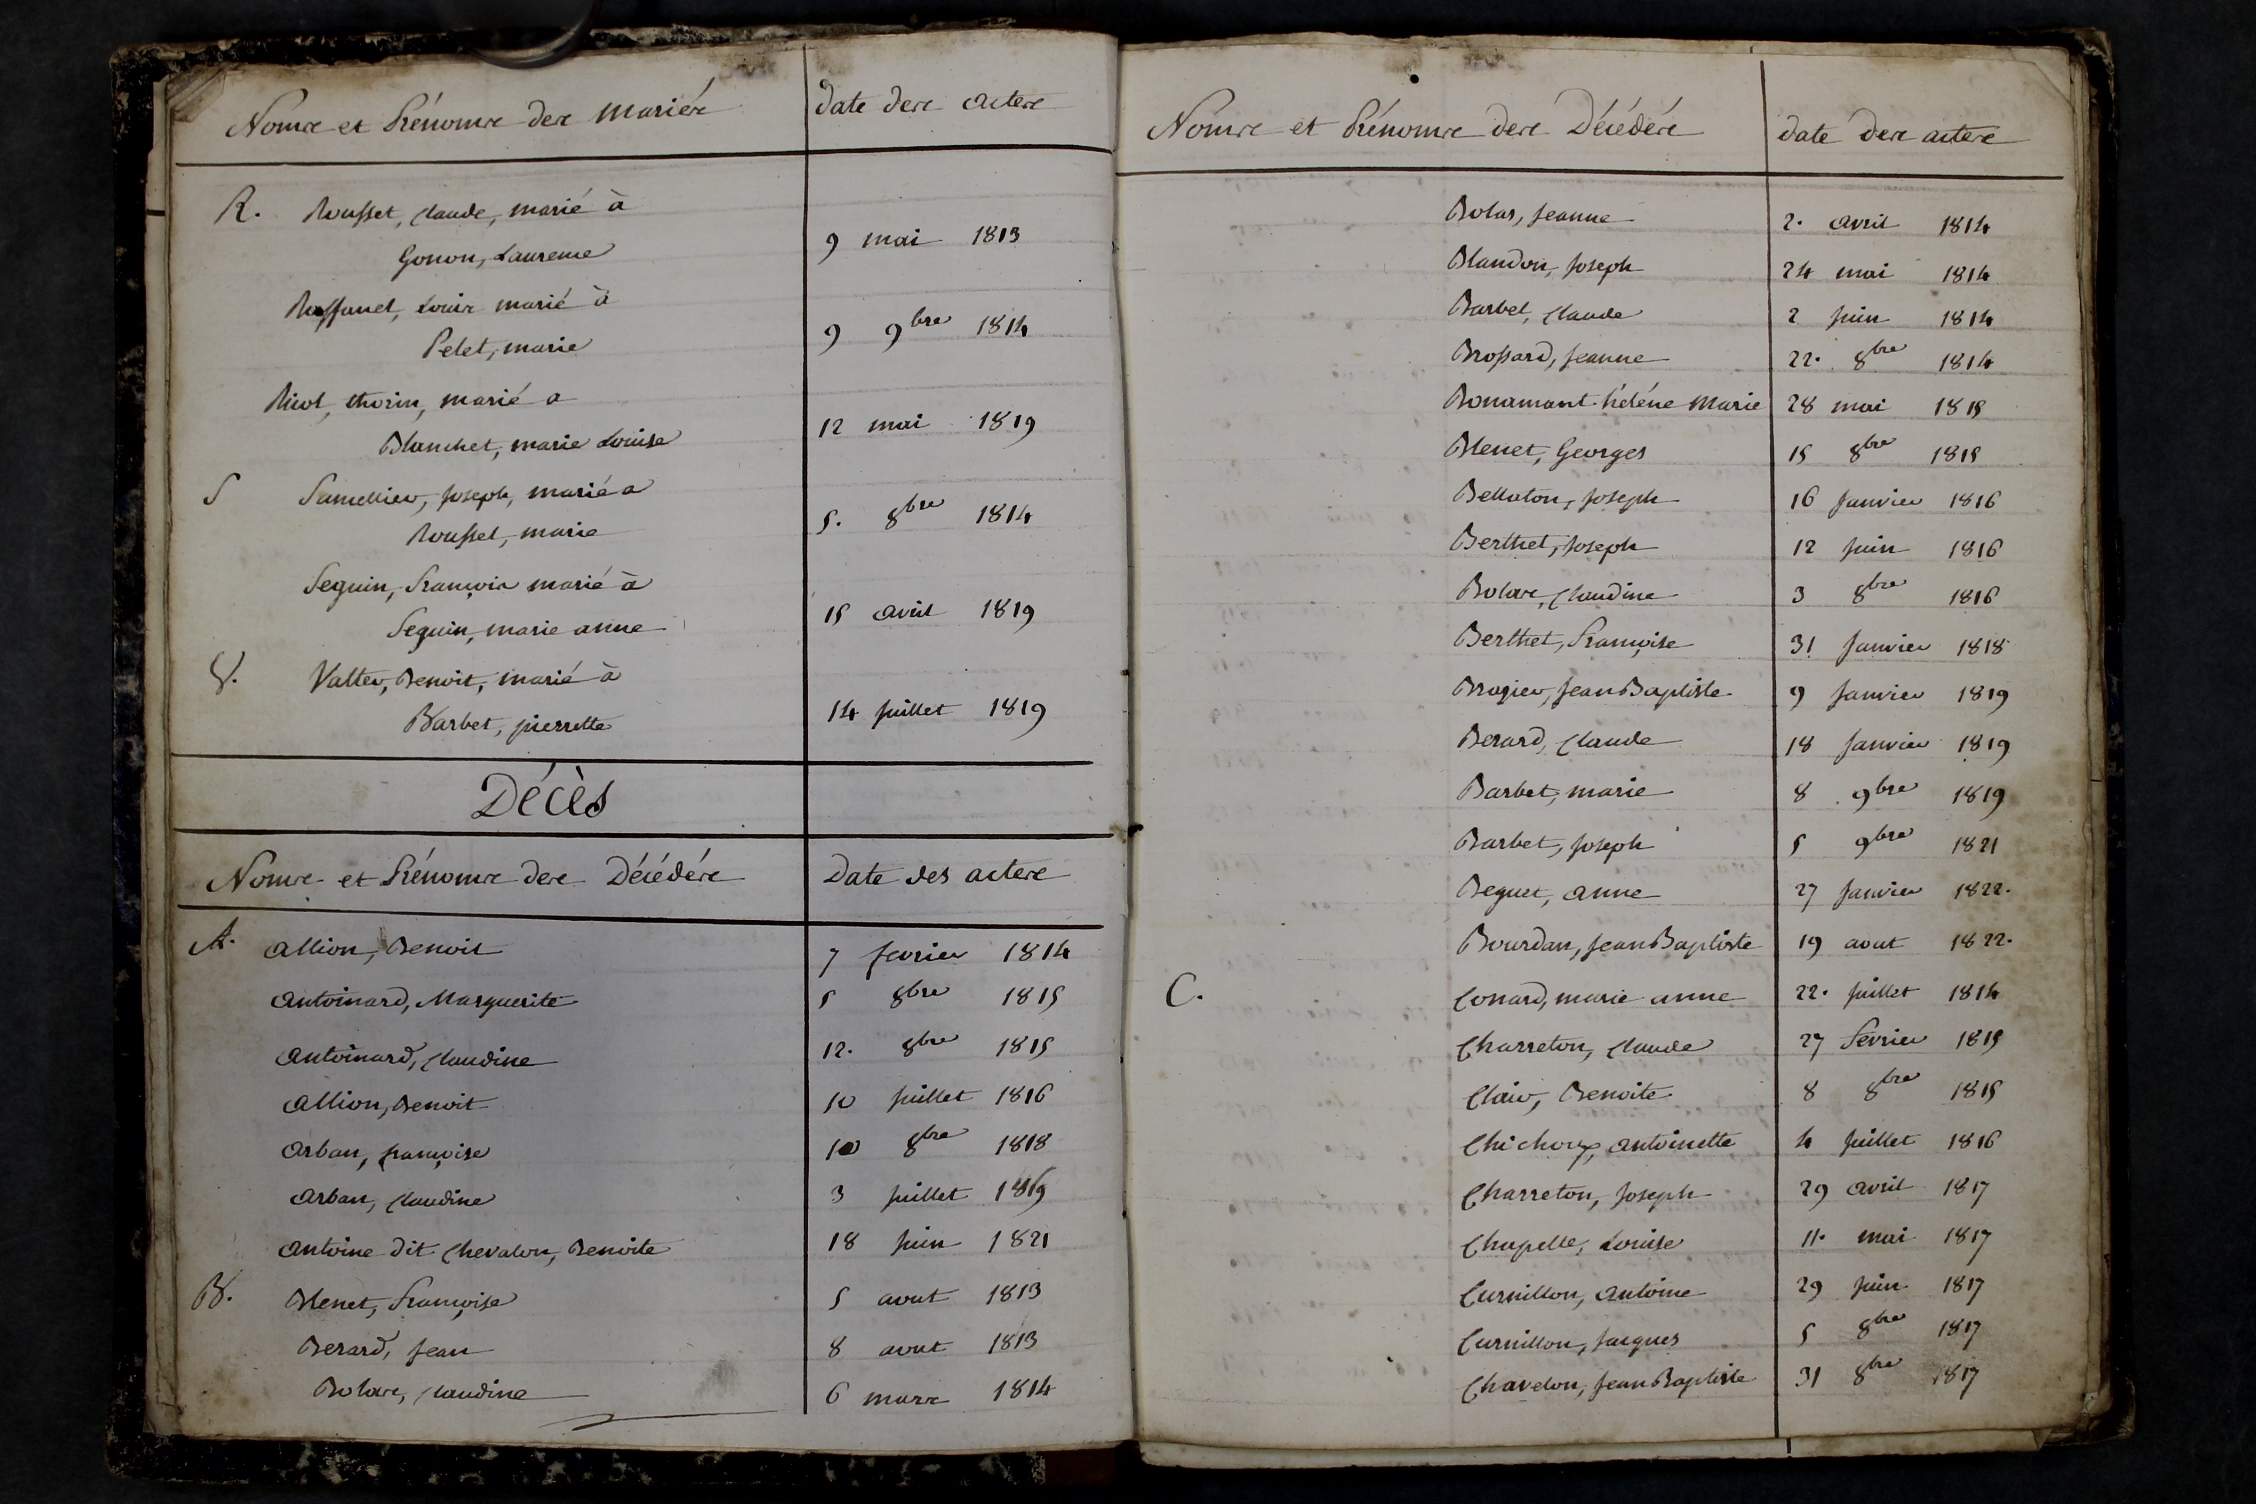 Noms et Prénoms des mariés date des actes
R. Rousset, Claude, marié à
Gonon, Laurence 9 mai 1813
Louis marié à
Pelet, marie 9 9bre 1814
thorin, marié a
Blanchet, marie Louise 12 mai 1819
S Joseph, marié a
Rousset, marie 5. 8bre 1814
Seguin, François marié à
Seguin, marie anne 15 avril 1819
V. Benoit, marié à
Barbet, pierrette 14 juillet 1819
Décès
Noms et Prénoms des Décédés Date des actes
A. Allion, Benoit 7 fevrier 1814
Antoinard, Marguerite 5 8bre 1815
Antoinard, Claudine 12. 8bre 1815
Allion, Benoit 10 juillet 1816
Arban, françoise 10 8bre 1818
Arban, Claudine 3 juillet 1819
Antoine dit Chevalon, Benoite 18 juin 1821
B. Blenet, Françoise 5 aout 1813
Berard, Jean 8 aout 1813
Bolas, Claudine 6 mars 1814
Noms et Prénoms des Décédés date des actes
Bolas, Jeanne 2. avril 1814
Blandon, Joseph 24 mai 1814
Barbet, Claude 2 juin 1814
Brossard, Jeanne 22. 8bre 1814
Bonamant hélène Marie 28 mai 1815
Blenet, Georges 15 8bre 1815
Bellaton, Joseph 16 Janvier 1816
Berthet, Joseph 12 juin 1816
Bolas, Claudine 3 8bre 1816
Berthet, Françoise 31 Janvier 1818
Jean Baptiste 9 Janvier 1819
Berard, Claude 18 Janvier 1819
Barbet, marie 8 9bre 1819
Barbet, Joseph 5 9bre 1821
Beguet, anne 27 Janvier 1822.
Bourdan, Jean Baptiste 19 aout 1822.
C. Conard, marie anne 22. juillet 1814
Charreton, Claude 27 Fevrier 1815
Clair, Benoite 8 8bre 1815
antoinette 4 juillet 1816
Charreton, Joseph 29 avril 1817
Chapelle, Louise 11. mai 1817
Curnillon, Antoine 29 juin 1817
Curnillon, Jacques 5 8bre 1817
Chavelon, Jean Baptiste 31 8bre 1817